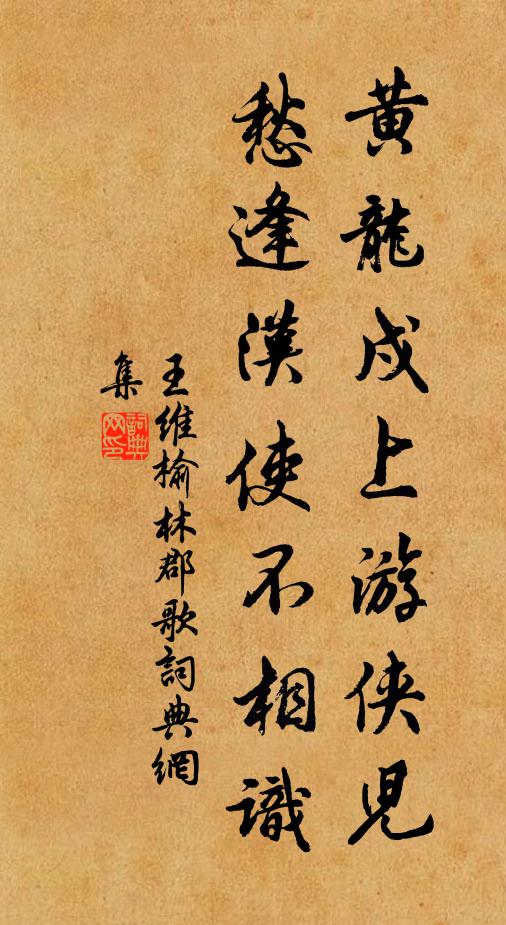 黄龍戍上游俠児
愁逢漢使不相識
王維榆林郡歌詞典網
集
詞典網印